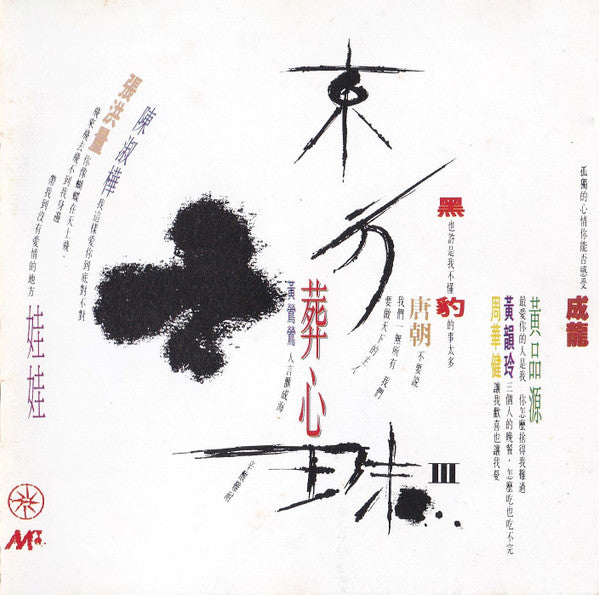 孤獨的心情你能否感受
成龍
黃品源
最愛你的人是我 你怎麼捨得我難過
黃韻玲
三個人的晚餐，怎麼吃也吃不完
周華健
讓我歡喜也讓我憂
黑豹
也許是我不懂
的事太多
唐朝
不要說
我們一無所有 我們
要做天下的主人
東方珠 III
葬心
黃鶯鶯
陳淑樺
我這樣愛你到底對不對
張洪量
你像蝴蝶在天上飛，
飛來飛去飛不到我身邊
帶我到沒有愛情的地方
娃娃